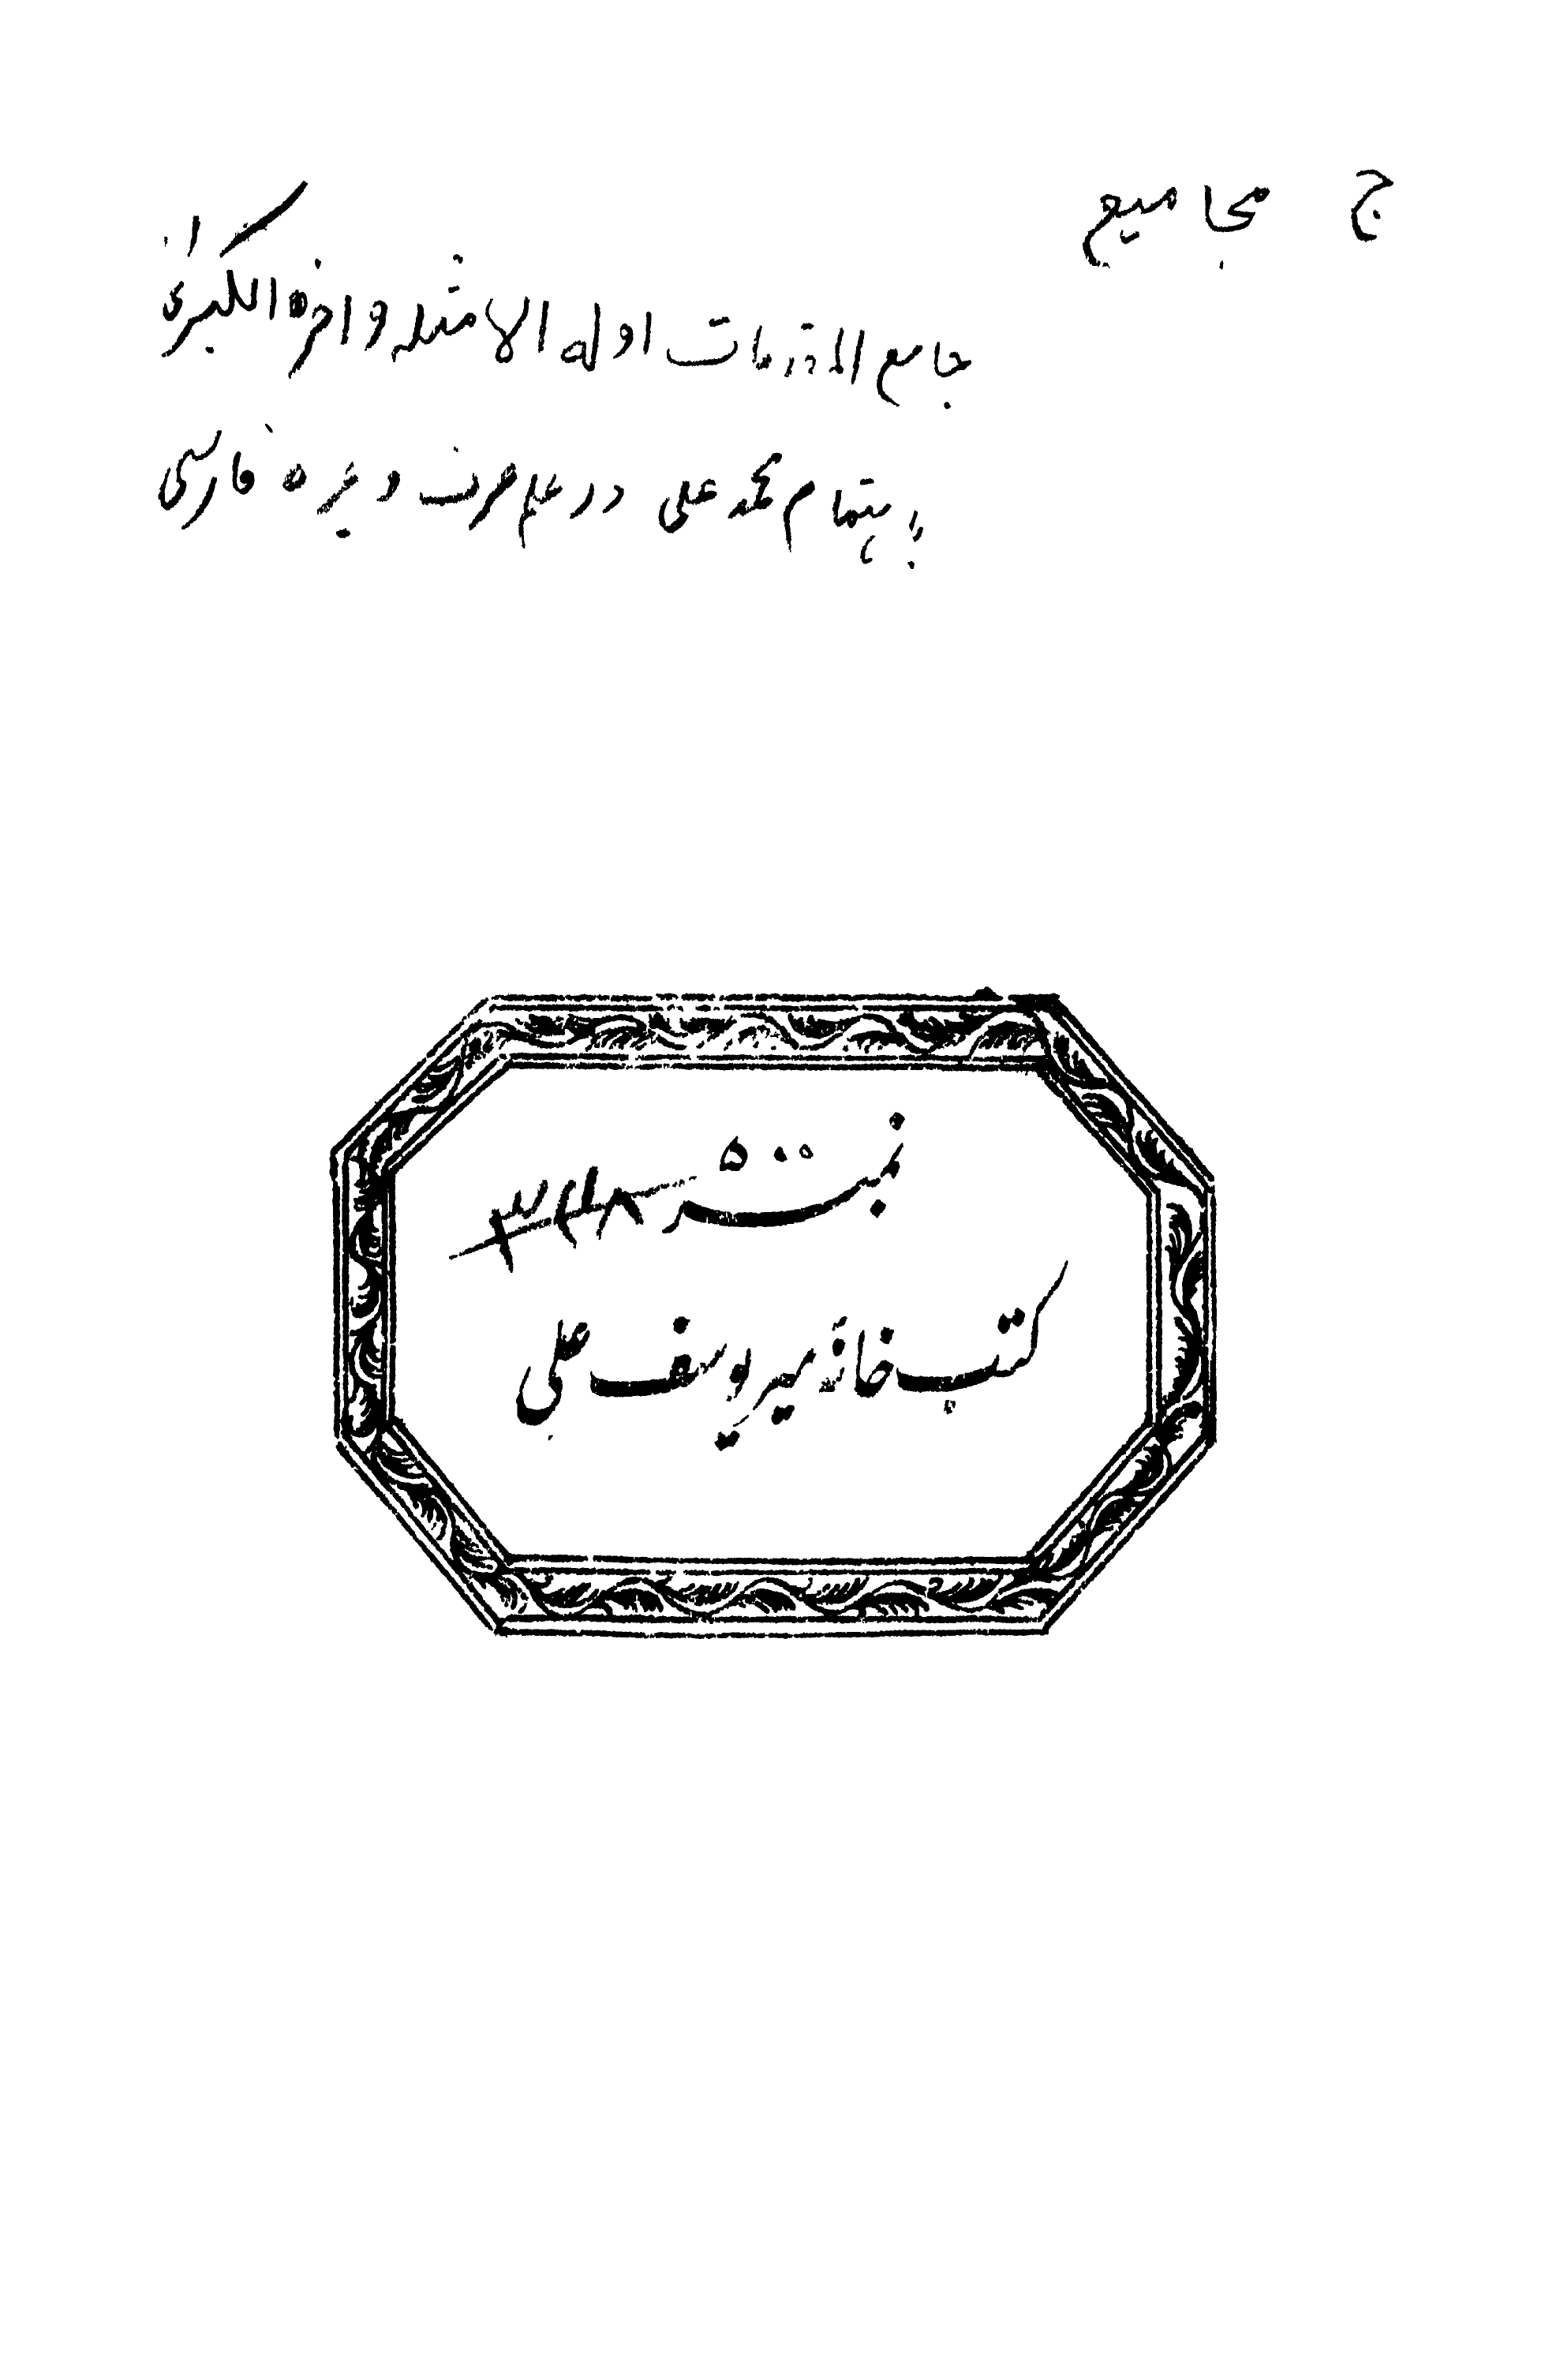 ج مجامیع
جامع المقدمات اوله الامثله و اخره الکبری
باهتمام محمد علی در علم صرف و غیره فارسی
نمبر ۵۰۰
کتب خانهٔ میر یوسف علی